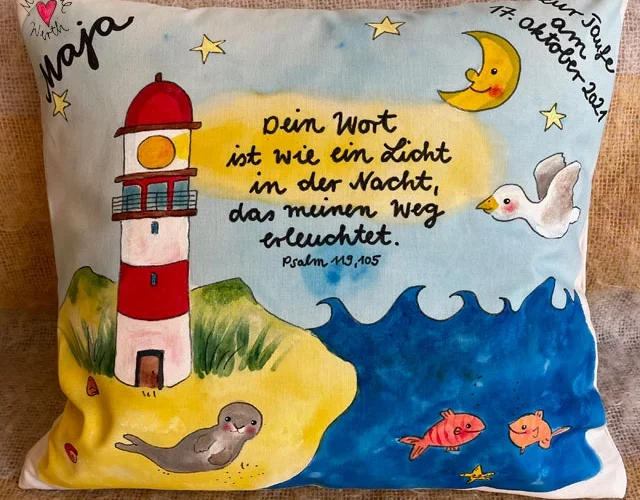 Maja
zur Taufe
am
17. Oktober 2021
Dein Wort
ist wie ein Licht
in der Nacht,
das meinen Weg
erleuchtet.
Psalm 119,105